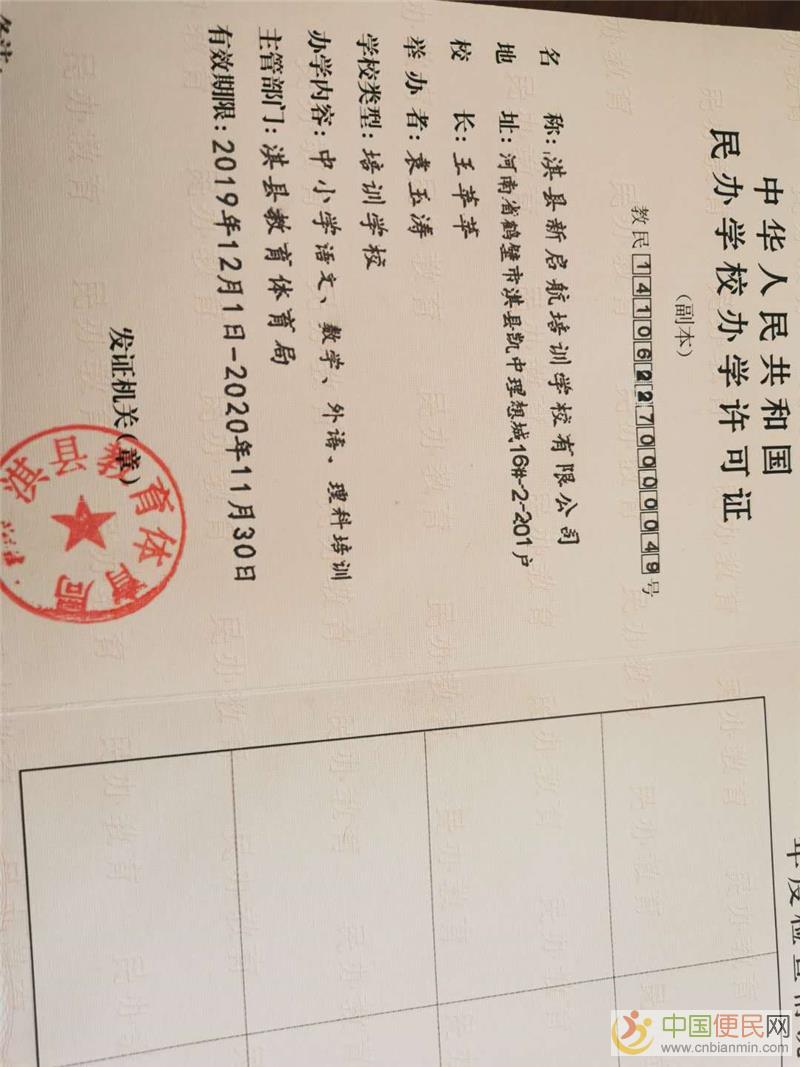 中华人民共和国
民办学校办学许可证
(副本)
教民141062270000049号
名 称:淇县新启航培训学校有限公司
地 址:河南省鹤壁市淇县凯中理想城16#-2-201户
校 长:王苹苹
举 办 者:袁玉涛
学校类型:培训学校
办学内容:中小学语文、数学、外语、理科培训
主管部门:淇县教育体育局
有效期限:2019年12月1日-2020年11月30日
发证机关(章)
淇县教育体育局
备注:
年度检查情况
中国便民网
www.cnbianmin.com